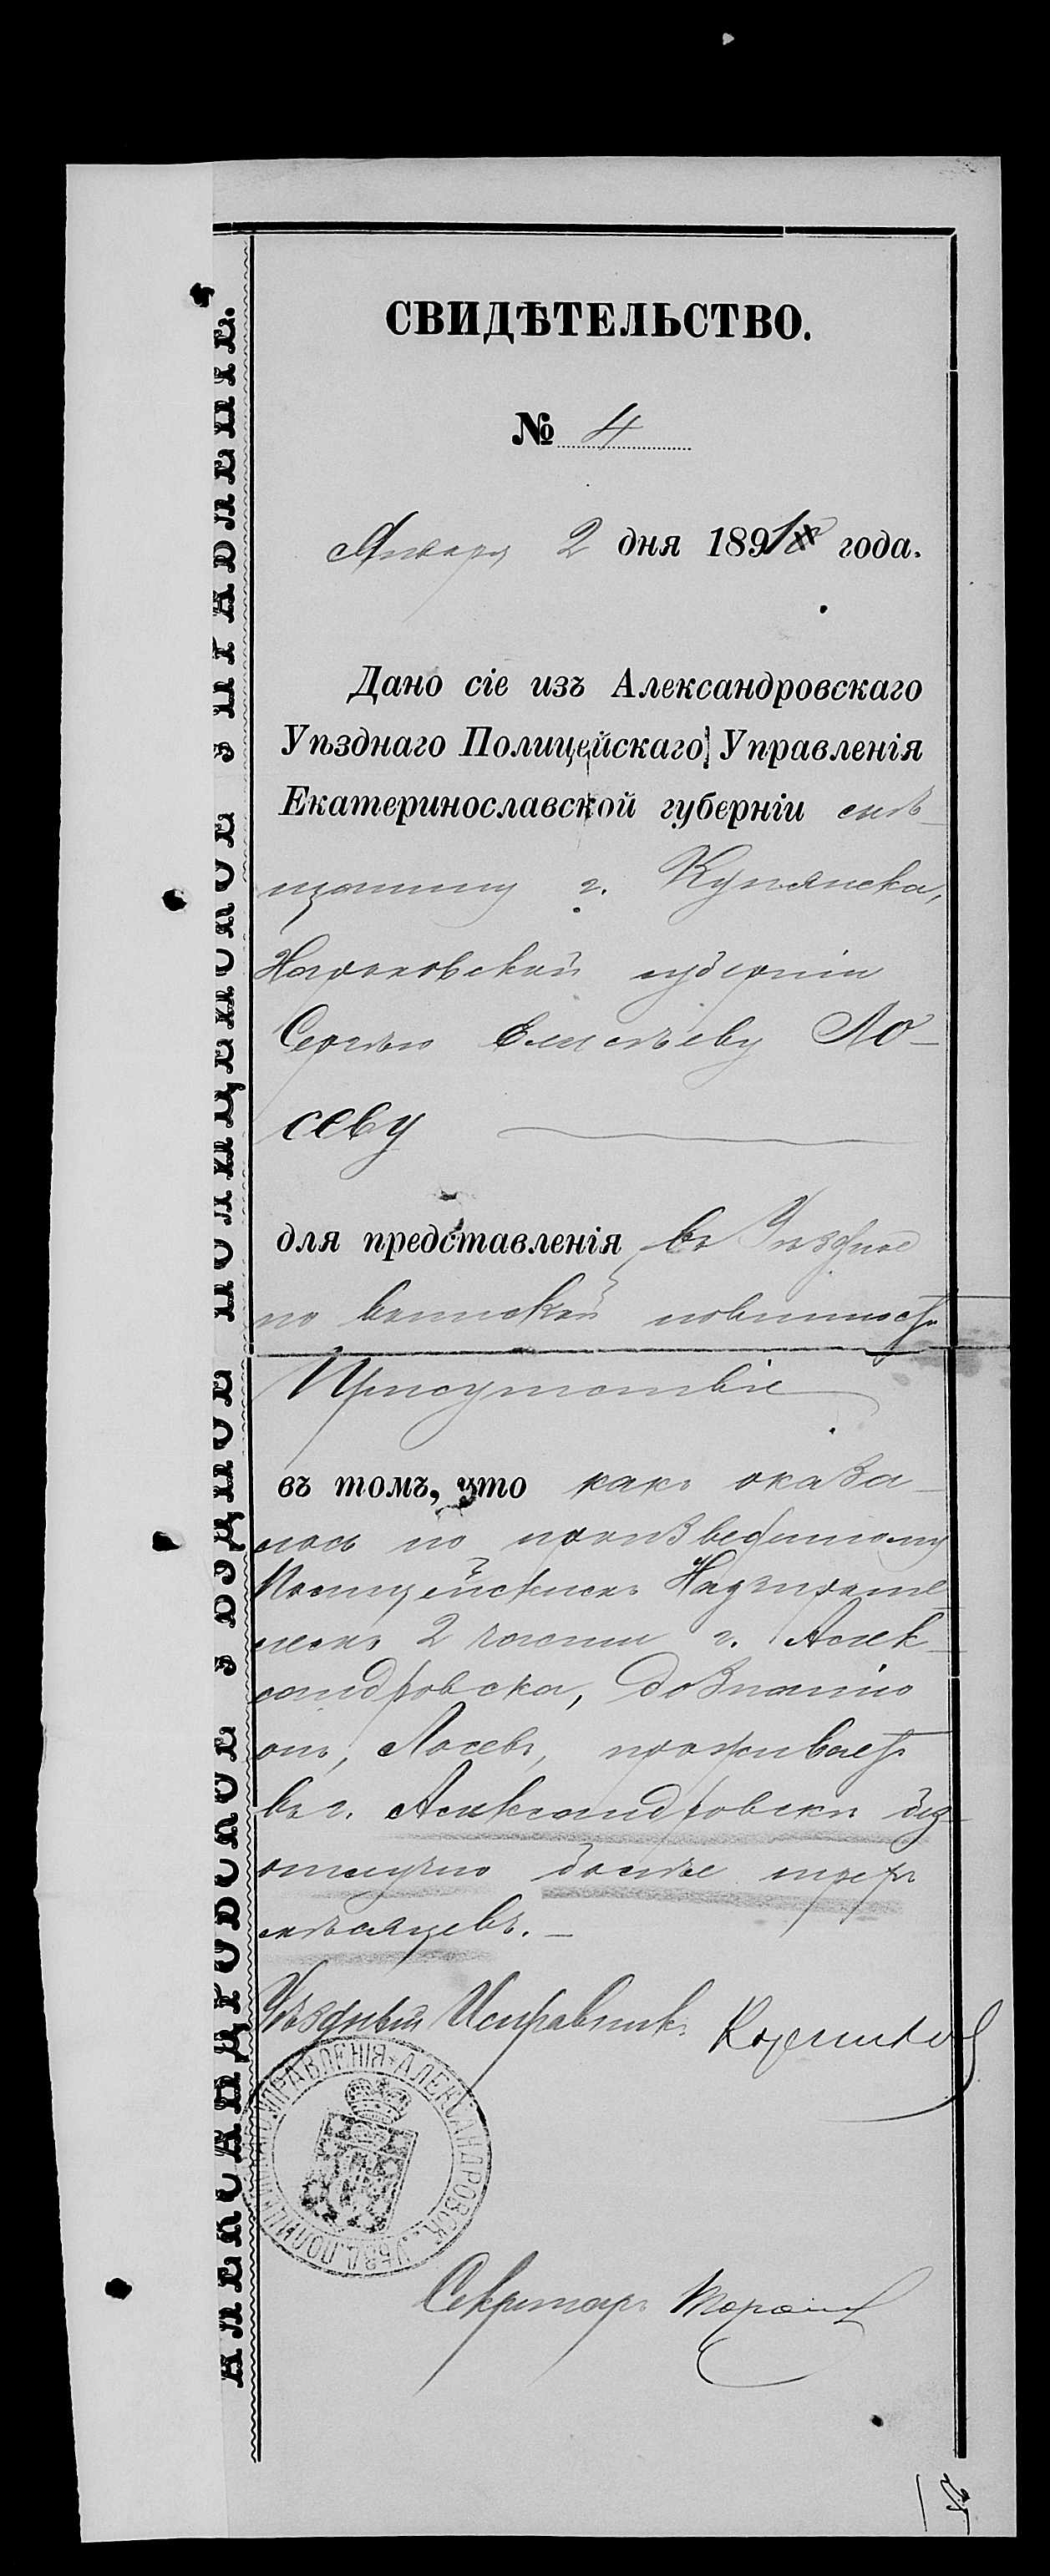 АЛЕКСАНДРОВСКОЕ УѢЗДНОЕ ПОЛИЦЕЙСКОЕ УПРАВЛЕНІЕ.
СВИДѢТЕЛЬСТВО.
№ 4
Января 2 дня 1891 года.
Дано сіе изъ Александровскаго
Уѣзднаго Полицейскаго Управленія
Екатеринославской губерніи мѣ-
щанину г. Купянска,
Харьковской губерніи
Сергѣю Елисѣеву Ло-
севу
для представленія въ Уѣздное
по воинской повинности
Присутствіе
въ томъ, что какъ оказа-
лось по произведенному
Полицейскимъ Надзирате-
лемъ 2 части г. Алек-
сандровска, дознанію
онъ, Лосевъ, проживаетъ
въ г. Александровскѣ без-
отлучно болѣе трехъ
мѣсяцевъ.
Уѣздный Исправникъ
УПРАВЛЕНІЯ АЛЕКСАНДРОВСК. УѢЗД. ПОЛИЦ.
Секретарь